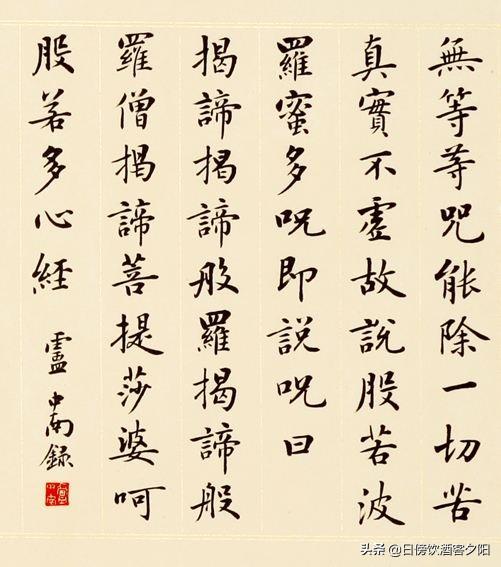 無等等咒能除一切苦
真實不虛故說股若波
羅蜜多呪即説呪曰
揭諦揭諦般羅揭諦般
羅僧揭諦菩提莎婆呵
股若多心經 盧中南録
头条 @日傍饮酒客夕阳